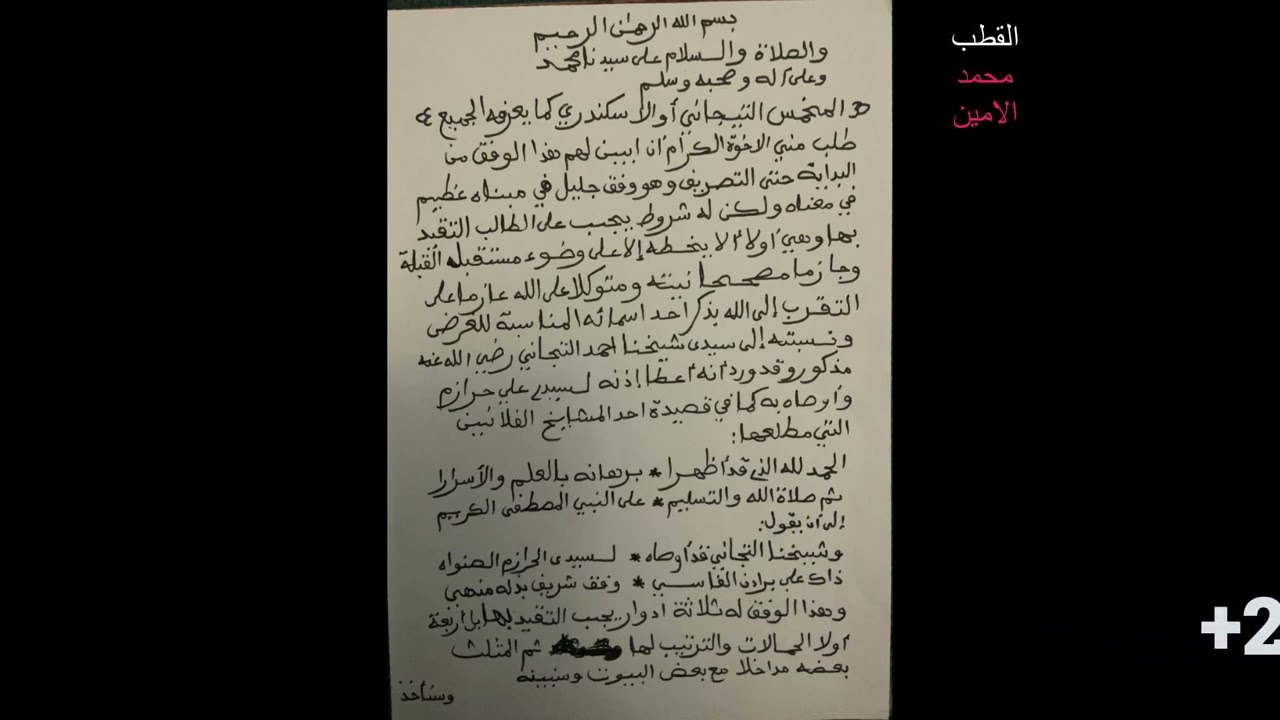 بسم الله الرحمن الرحيم
والصلاة والسلام على سيدنا محمد
وعلى آله وصحبه وسلم
المخمس التيجاني أو الاسكندري كما يعرفه الجميع
طلب مني الاخوة الكرام ان ابين لهم هذا الوفق من
البداية حتى التصريف وهو وفق جليل في مبناه عظيم
في معناه ولكن له شروط يجب على الطالب التقيد
بها وهي أولا ألا يخطه إلا على وضوء مستقبلا القبلة
وجازما مصححا نيته ومتوكلا على الله عازما على
التقرب إلى الله بذكر احد اسمائه المناسبة للغرض
ونسبته إلى سيدي شيخنا احمد التجاني رضي الله عنه
مذكور وقد ورد أنه أعطا إذنه لسيدي علي حرازم
وأوصاه به كما في قصيدة احد المشايخ
التي مطلعها:
الحمد لله الذي قد أظهرا * برهانه بالعلم والأسرارا
ثم صلاة الله والتسليم * على النبي المصطفى الكريم
إلى أن يقول:
وشيخنا التجاني قد أوصاه * لسيدي الحرازم
ذاك علي برادة الفاسي * وفق شريف
وهذا الوفق له ثلاثة ادوار يجب التقيد بها بل أربعة
أولا الحالات والترتيب لها ثم المثلث
بعضه مداخلا مع بعض البيوت وسنبينه
وسنأخذ
القطب
محمد
الامين
+2